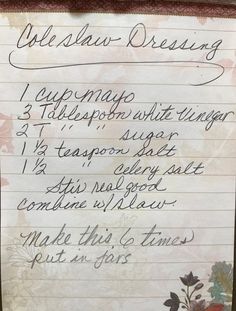 Coleslaw Dressing
1 cup mayo
3 Tablespoon white Vinegar
2 T " " sugar
1 ½ teaspoon salt
1 ½ " celery salt
Stir real good
combine w/slaw.
Make this 6 times
put in jars